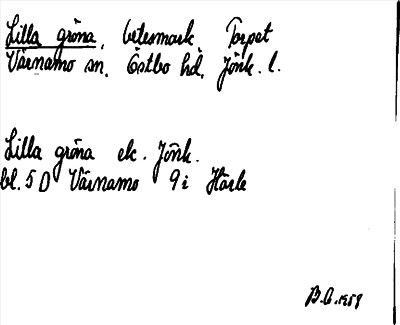 Lilla gröna, betesmark Torpet
Värnamo sn. Östbo hd. Jönk. l.
Lilla gröna ek. Jönk.
bl. 5 D Värnamo 9i Hörle
B.G. 1959